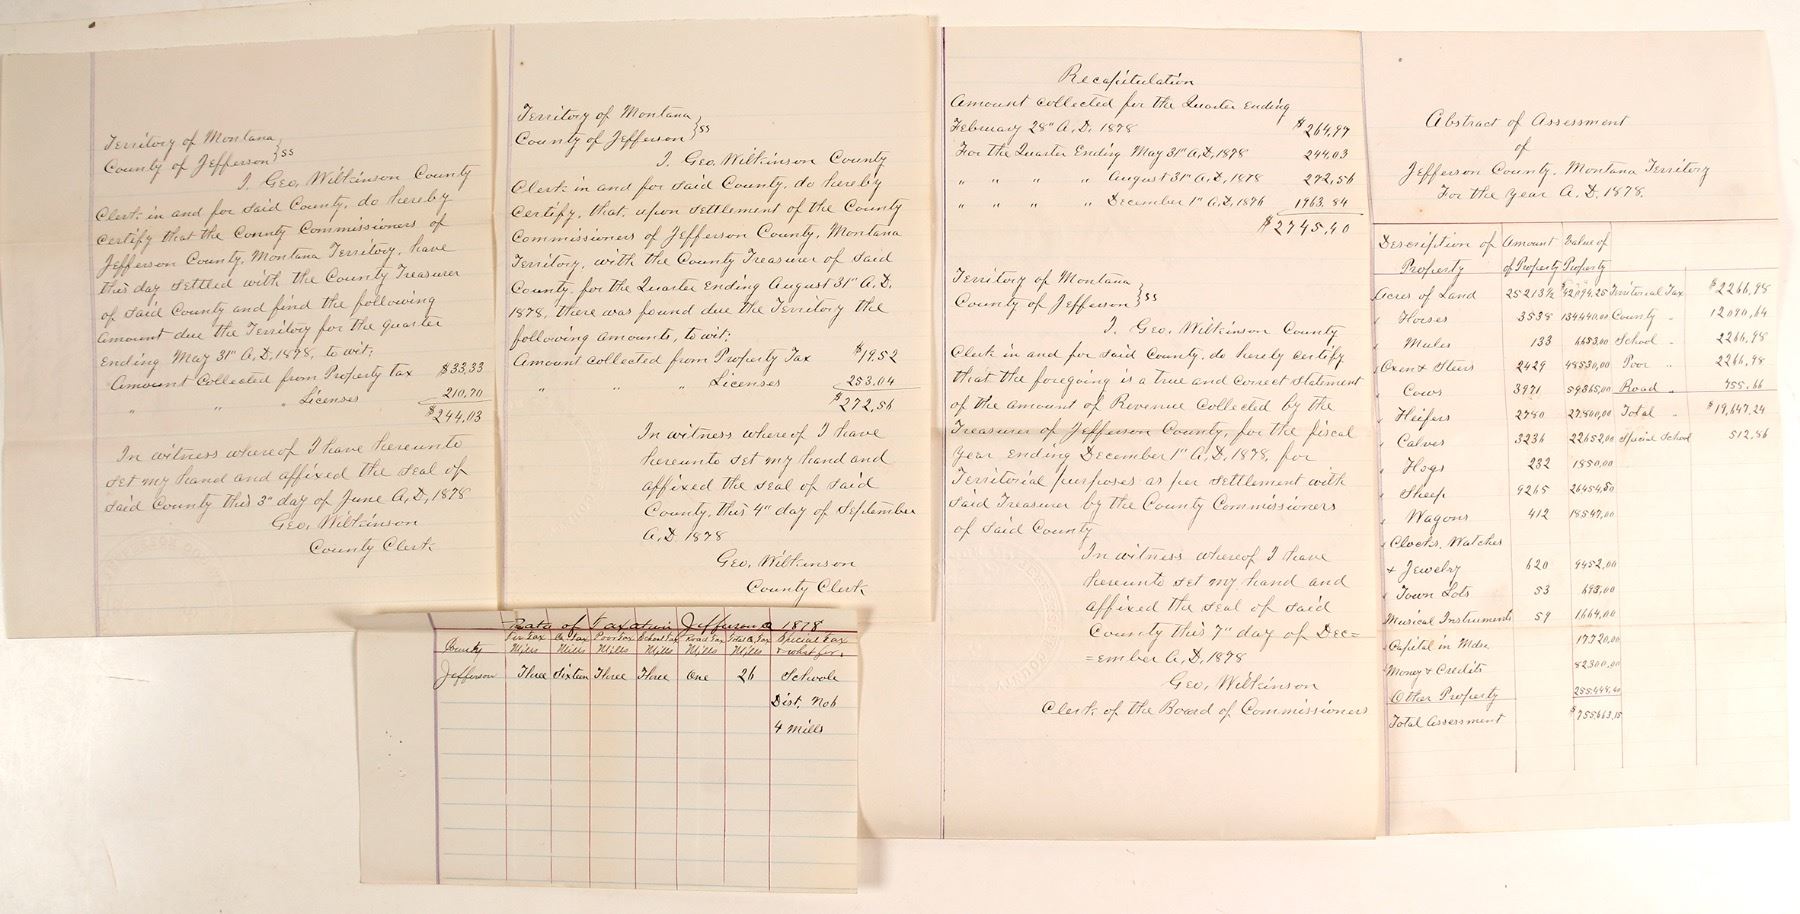 Territory of Montana
County of Jefferson } SS
I, Geo, Wilkinson County
Clerk in and for said County, do hereby
certify that the County Commissioners of
Jefferson County, Montana Territory, have
this day settled with the County Treasurer
of said County and find the following
amount due the Territory for the quarter
Ending May 31" A,D, 1878, to wit;
Amount Collected from Property tax $33,33
" " " Licenses 210,70
$244,03
In witness whereof I have hereunto
set my hand and affixed the seal of
said County this 3" day of June A,D, 1878
Geo, Wilkinson
County Clerk
Territory of Montana
County of Jefferson } SS
I, Geo, Wilkinson County
Clerk in and for said County, do hereby
Certify, that, upon settlement of the County
Commissioners of Jefferson County, Montana
Territory, with the County Treasurer of said
County, for the Quarter Ending August 31" A,D,
1878, there was found due the Territory the
following amounts, to wit;
Amount collected from Property Tax $19,52
" " " Licenses 253,04
$272,56
In witness whereof I have
hereunto set my hand and
affixed the seal of said
County, this 4" day of September
A,D 1878
Geo, Wilkinson
County Clerk
Recapitulation
Amount collected for the Quarter Ending
February 28" A,D, 1878 $264,97
For the Quarter Ending May 31" A,D, 1878 244,03
" " " " August 31" A,D, 1878 272,56
" " " " December 1" A,D, 1878 1963,84
$2745,40
Territory of Montana
County of Jefferson } SS
I, Geo, Wilkinson County
Clerk in and for said County, do hereby certify
that the foregoing is a true and correct statement
of the amount of Revenue collected by the
Treasurer of Jefferson County, for the fiscal
year ending December 1" A,D, 1878, for
Territorial purposes as per settlement with
said Treasurer by the County Commissioners
of said County
In witness whereof I have
hereunto set my hand and
affixed the seal of said
County this 7" day of Dec=
=ember A,D, 1878
Geo, Wilkinson
Clerk of the Board of Commissioners
Abstract of Assessment
of
Jefferson County, Montana Territory
For the year A,D, 1878,
Description of Amount Value of
Property of Property Property
Acres of Land 25213½ $42094,25 Territorial Tax $2266,98
" Horses 3538 134440,00 County " 12090,64
" Mules 133 6653,00 School " 2266,98
" Oxen & Steers 2429 48530,00 Poor " 2266,98
" Cows 3971 59365,00 Road " 755,66
" Heifers 2780 27800,00 Total " $19,647,24
" Calves 3236 22652,00 Special School 512,86
" Hogs 232 1850,00
" Sheep 9265 26454,50
" Wagons 412 18547,00
" Clocks, Watches
& Jewelry 620 9452,00
" Town Lots 53 693,00
Musical Instruments 59 1664,00
Capital in Mdse 17720,00
Money & Credits 82300,00
Other Property 255448,40
Total Assessment $755663,15
Rate of Taxation Jefferson Co 1878
County Ter Tax Mills Co, Tax Mills Poor Tax Mills School Tax Mills Road Tax Mills Total Co, Tax Mills Special Tax & what for,
Jefferson Three Sixteen Three Three One 26 Schools
Dist, No6
4 Mills